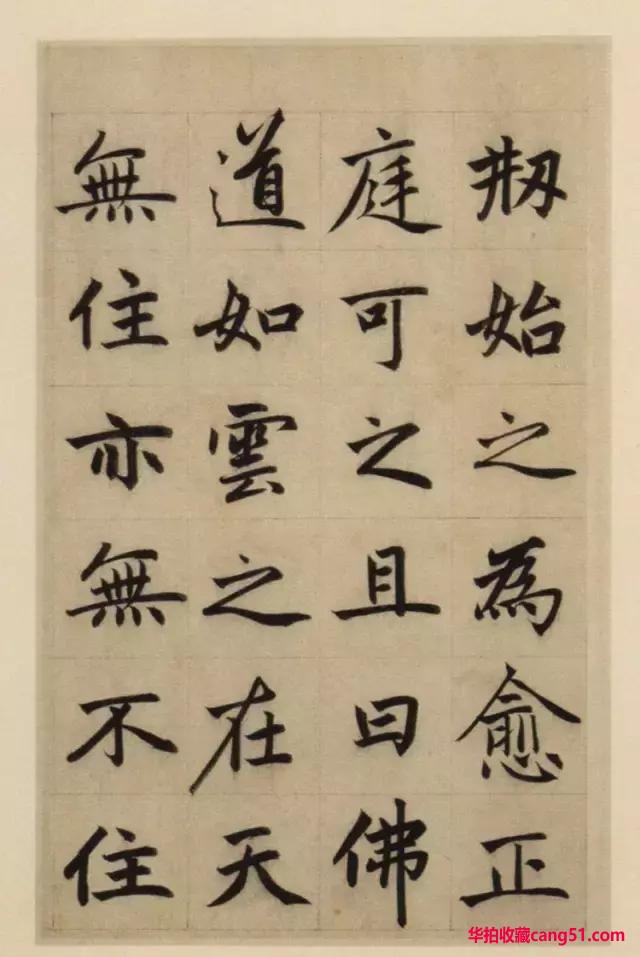 剙始之為愈正
庭可之且曰佛
道如雲之在天
無住亦無不住
华拍收藏cang51.com